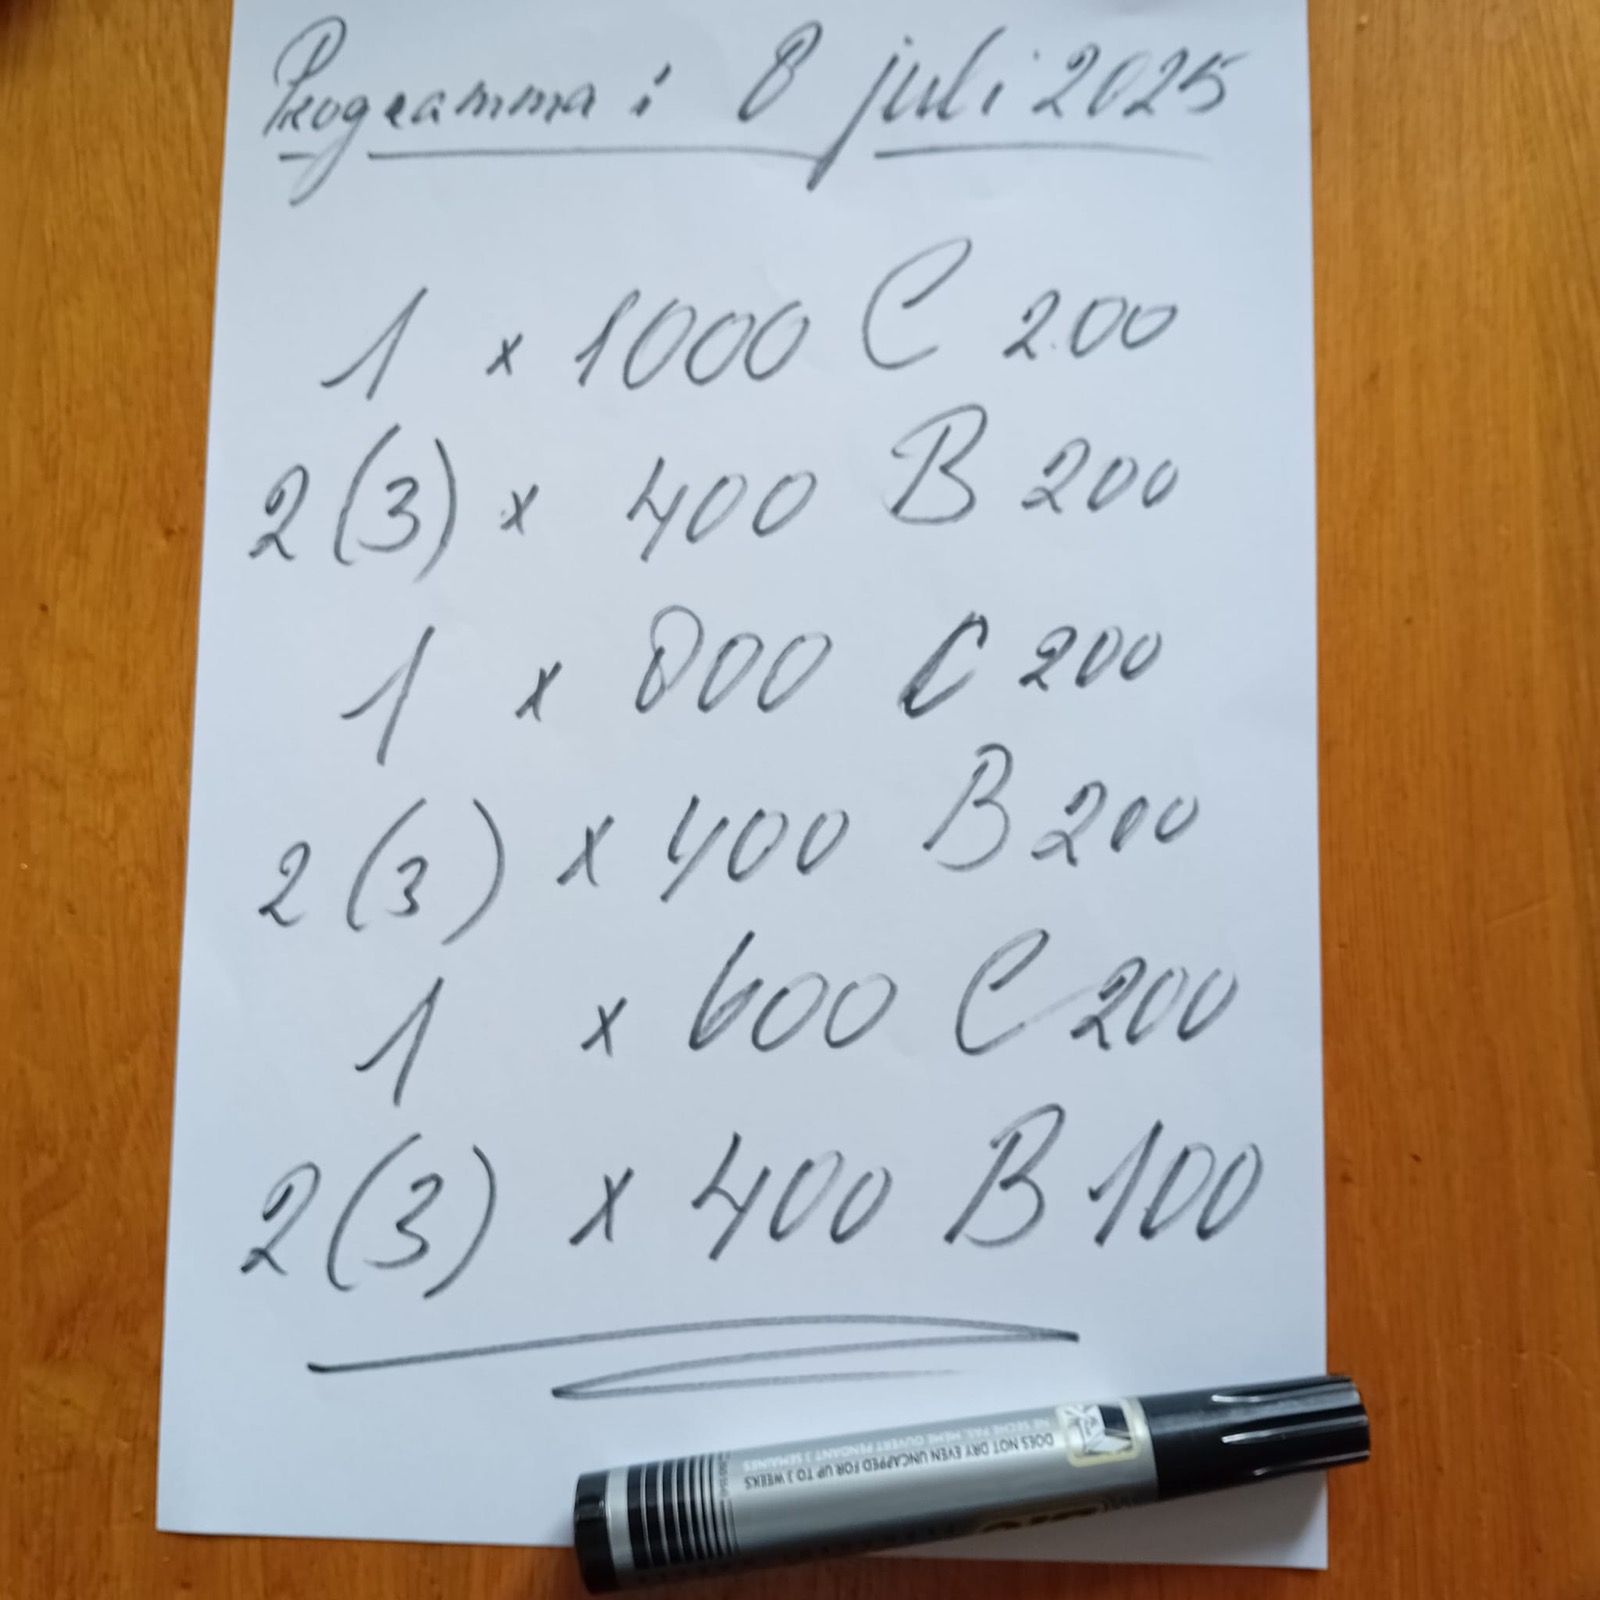 Programma: 8 juli 2025
1 x 1000 C 200
2 (3) x 400 B 200
1 x 800 C 200
2 (3) x 400 B 200
1 x 600 C 200
2 (3) x 400 B 100
DOES NOT DRY EVEN UNCAPPED FOR UP TO 3 WEEKS
NE SECHE PAS, MEME OUVERT PENDANT 3 SEMAINES